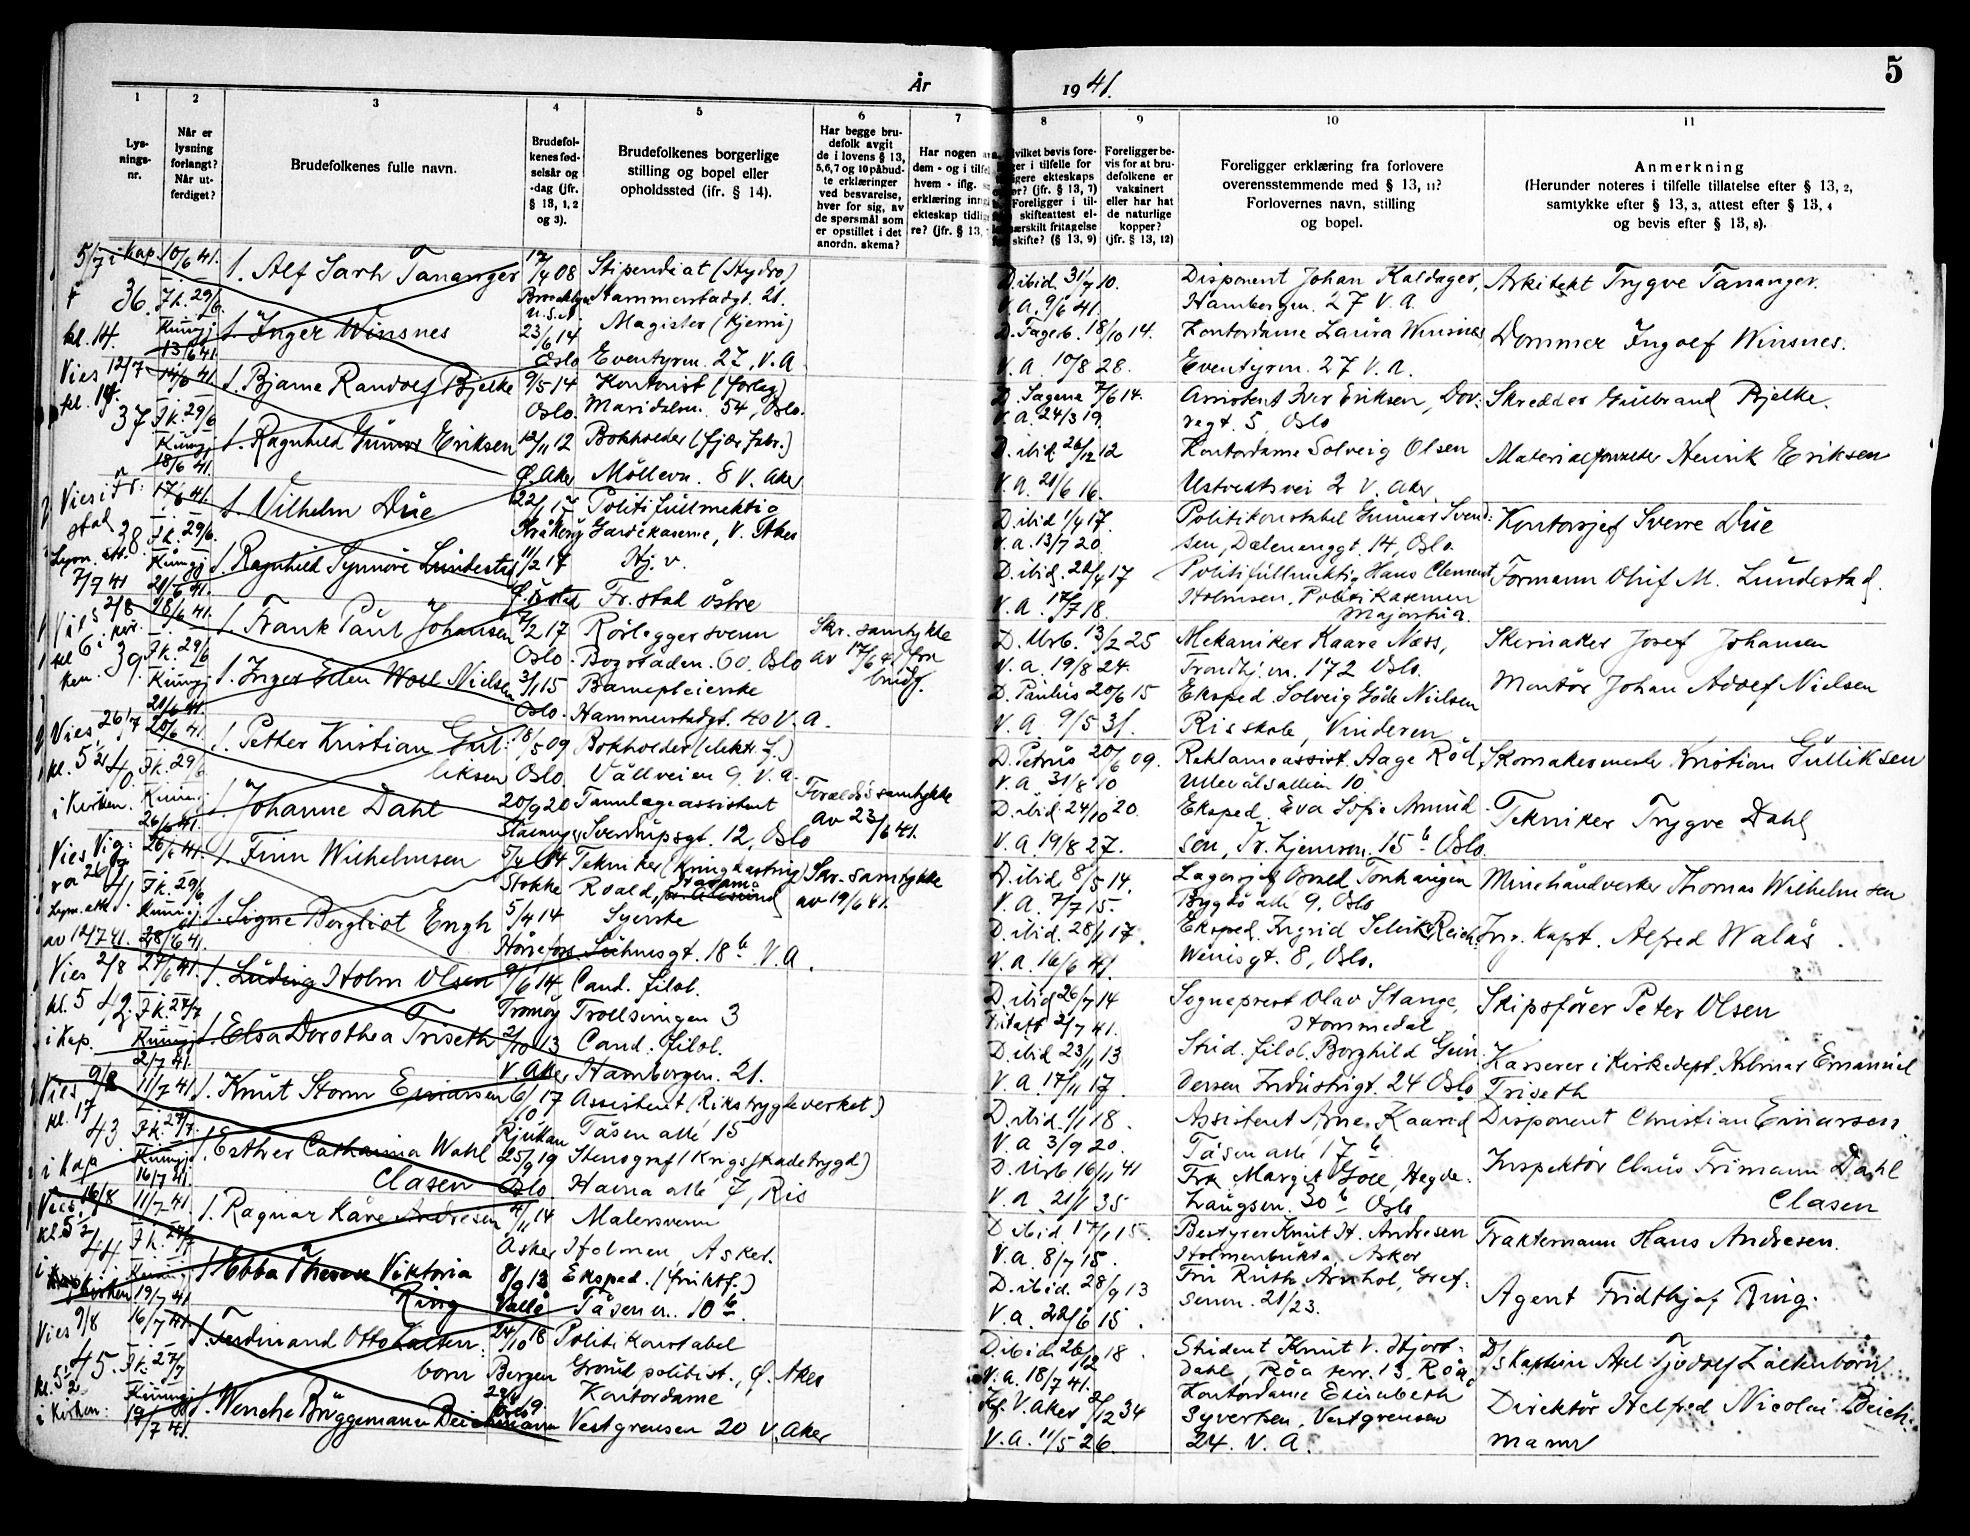 År
1941.
5
1
2
3
4
5
6
7
8
9
10
11
Lys-
nings-
nr.
Når er
lysning
forlangt?
Når ut-
ferdiget?
Brudefolkenes fulle navn.
Brudefol-
kenes fød-
selsår og
-dag (jfr.
§ 13, 1, 2
og 3).
Brudefolkenes borgerlige
stilling og bopel eller
opholdssted (ifr. § 14).
Har begge bru-
defolk avgit
de i lovens § 13,
5, 6, 7 og 10 påbud-
te erklæringer
ved besvarelse,
hver for sig, av
de spørsmål som
er opstillet i det
anordn. skema?
Har nogen av
dem - og i tilfel
hvem - iflg.
erklæring inng
ekteskap tidlig
re? (jfr. § 13,
vilket bevis fore-
ger i tilfelle for
igere ekteskaps
or? (jfr. § 13, 7)
Foreligger i til-
skifteattest el-
nærskilt fritagelse
skifte? (§ 13, 9)
Foreligger be-
vis for at bru-
defolkene er
vaksinert
eller har hat
de naturlige
kopper?
(jfr. § 13, 12)
Foreligger erklæring fra forlovere
overensstemmende med § 13, 11?
Forlovernes navn, stilling
og bopel.
Anmerkning
(Herunder noteres i tilfelle tillatelse efter § 13, 2,
samtykke efter § 13, 3, attest efter § 13, 4
og bevis efter § 13, 8).
5/7 i Kap. 10/6 41. 1. Alf Sarh Tananger 17/4 08 Stipendiat (Hydro) D. ibid 31/7 10. Disponent Johan Kaldager, Arkitekt Trygve Tananger.
36. Fk. 29/6. Brooklyn Hammerstadgt. 21. V.A. 9/6 41. Hambergvn. 27 V.A.
kl. 14. 1. Inger Winsnes U.S.A. 23/6 14 Magister (Kjemi) D. Fagerb. 18/10 14. Kontordame Laura Winsnes Dommer Ingolf Winsnes.
13/6 41. Oslo Eventyrvn. 27, V.A. V.A. 10/8 28. Eventyrvn. 27 V.A.
Vies 12/7 1. Bjarne Randolf Bjelke 9/5 14 Kontorist (forlag) D. Sagene 7/6 14. Assistent Iver Eriksen, Dov- Skredder Gulbrand Bjelke.
37. Fk. 29/6 Oslo. Maridalsvn. 54, Oslo. V.A. 24/3 19. regt. 5, Oslo
1. Ragnhild Gunvor Eriksen 12/11 12 Bokholder (fjær fabr.) D. ibid 26/12 12 Kontordame Solveig Olsen Materialforvalter Henrik Eriksen
18/6 41. Ø. Aker Möllevn. 8 V. Aker V.A. 21/6 16. Ustvedtsvei 2 V. Aker.
Vies i Fr: stad 17/6 41. 1. Vilhelm Due 22/1 17 Politifullmektig D. ibid 1/4 17. Politikonstabel Gunnar Svend: Kontorsjef Sverre Due
38. Fk. 29/6. Kråkerøy Gardekaserne, V. Aker V.A. 13/7 20. sen, Dælenenggt. 14, Oslo.
Lysn. att. 7/7 41 1. Ragnhild Synnöve Lundestad 11/2 17 Hj. v. D. ibid. 22/4 17 Politifullmektig Hans Clement Formann Oluf M. Lundestad.
21/6 41. Fr.stad östre V.A. 17/7 18. Holmsen, Politikasernen
Majorstua.
2/8 18/6 41. 1. Frank Paul Johansen 7/2 17 Rörleggersvenn Skr. samtykke D. Urb. 13/2 25 Mekaniker Kaare Næss, Skrinaker Josef Johansen
39. Fk. 29/6 Oslo. Bogstadvn. 60. Oslo av 17/6 41 V.A. 19/8 24. Trondhj.vn. 172 Oslo.
1. Inger Ellen Woll Nielsen 3/1 15 Barnepleierske D. Paulus 20/6 15 Eksped. Solveig Nielsen Montör Johan Adolf Nielsen
21/6 41. Oslo. Hammerstadgt. 40 V.A. V.A. 9/5 31. Ris skole, Vinderen
Vies 26/7 20/6 41. 1. Petter Kristian Gul- 18/5 09 Bokholder (elektr. f.) D. Petrus 20/6 09. Reklameassist. Aage Röd, Skomakermester Kristian Gulliksen
40. Fk. 29/6 liksen Oslo. Vållveien 9. V.A. V.A. 31/8 10 Ullevålsalleen 10
i Kirken. 1. Johanne Dahl 20/9 20 Tannlægeassistent Foreldres samtykke D. ibid 24/10 20. Eksped. Eva Sofie Amund Tekniker Trygve Dahl
26/6 41. Stavanger Sverdrupsgt. 12, Oslo av 23/6 41. V.A. 19/8 27. sen, Tr.hjemsvn. 15 b Oslo.
Vies Vig- 26/6 41. 1. Finn Wilhelmsen 5/4 14 Tekniker (Kringkasting) Skr. samtykke D. ibid 8/5 14. Lagersjef Minehåndverker Thomas Wilhelmsen
ra 26/7 41. Fk. 29/6 Stokke Roald, av 19/6 41. V.A. 7/7 15. Bygdö allé 9. Oslo
1. Signe Bergliot Engh 5/4 14 Syerske D. ibid. 28/1 17. Eksped. Ingrid Ing. Kapt. Alfred Walås.
av 12/7 41. 28/6 41. Suhmsgt. 18 b V.A. V.A. 16/6 41. Wensgt. 8, Oslo.
Vies 2/8 27/6 41. 1. Ludvig Holm Olsen 9/6 14 Cand. filol. D. ibid 26/7 14 Sogneprest Olav Stange Skipsförer Peter Olsen
kl. 5 42. Fk. 27/7 Tromöy Trollsvingen 3 2/7 41. Hommedal
i Kap. 1. Elsa Dorothea Triseth 2/10 13 Cand. filol. D. ibid 23/11 13 Stud. filol. Borghild Gun Kasserer i Kirkedept. Hilmar Emanuel
2/7 41. V. Aker Hambergvn. 21. V.A. 17/11 17. versen Industrigt. 24 Oslo Triseth
Vies 9/8 11/7 41. 1. Knut Storm Einarsen 6/10 17 Assistent (Rikstrygdeverket) D. ibid. 1/1 18. Assistent Arne Kaarød Disponent Christian Einarsen.
kl. 17 43 Fk. 27/7. Rjukan Tåsen allé 15 V.A. 3/9 20. Tåsen allé 17 b
i Kap 1. Esther Catharina Wahl 25/9 19 Stenograf (Krigsskadetrygd) D. Urb 16/11 41 Frk. Margit Goll, Hegde- Inspektör Claus Frimann Dahl
16/7 41. Clasen Oslo. Havna allé 7, Ris V.A. 21/1 35 haugsvn. 30 b Oslo Clasen
Vies 16/8 11/7 41 1. Ragnar Kåre Andresen 4/11 14 Malersvenn D. ibid. 17/1 15. Bestyrer Knut H. Andresen Traktemann Hans Andresen.
kl. 5 1/2 44 Fk. 27/7 Asker Holmen, Asker. V.A. 8/7 15. Holmenbukta, Asker
i Kirken 1. Ebba Therese Viktoria 8/9 13 Eksped. (fruktf.) D. ibid. 28/9 13 Fru Ruth Arnhol, Gref- Agent Fridthjof Ring.
19/7 41. Ring Vallö Tåsenvn. 10 b. V.A. 22/6 15. senvn. 21/23.
Vies 9/8 16/7 41. 1. Ferdinand Otto Zalten- 24/10 18 Politikonstabel D. ibid. 26/12 18. Student Knut V. Hjort- D/S Kaptein Axel Tjodolf Zaltenborn
45. Fk. 27/7 born Bergen Grorud politist., Ø. Aker V.A. 18/7 41. dahl, Röa terr. 13, Röa
kl. 5 1/2 1. Wenche Brüggemann Deichmann Kontordame Kf. V. Aker 2/12 34 Kontordame Elisabeth Direktör Helfred Nicolai Deich-
i Kirken: 19/7 41. Vestgrensen 20 V. Aker V.A. 11/5 26. Syversen, Vestgrensen mann
24. V.A.